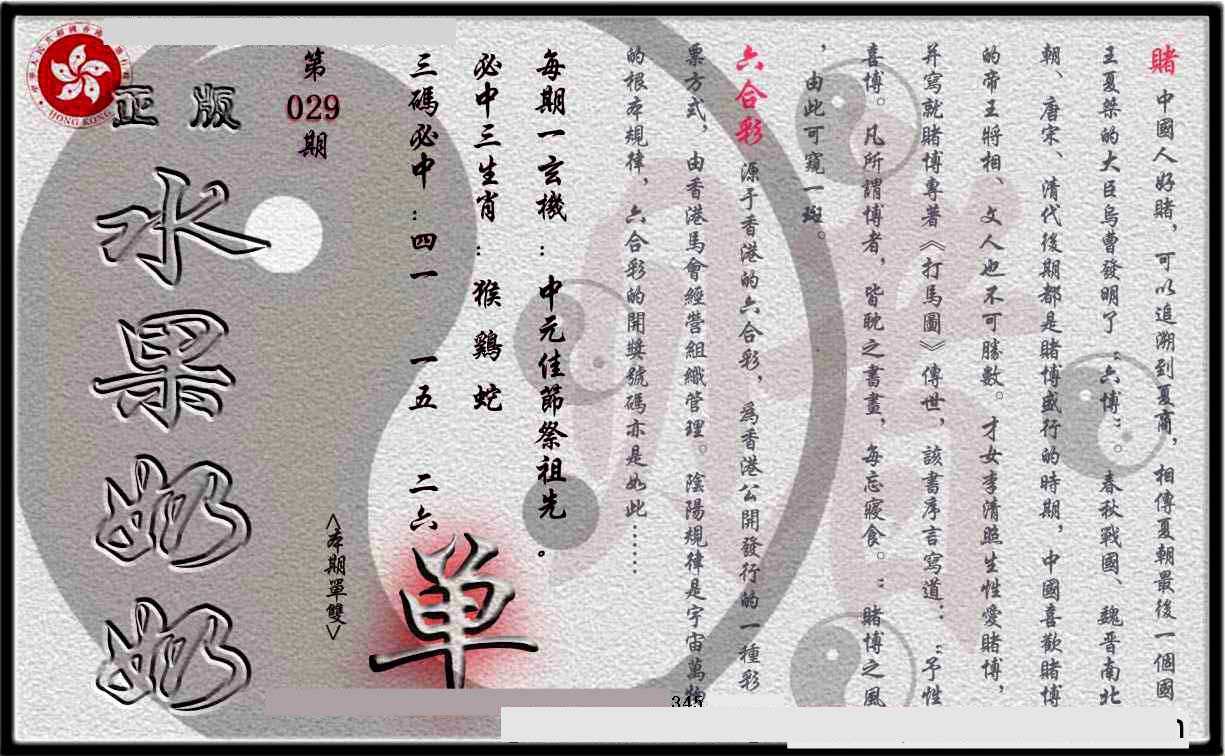 賭 中國人好賭，可以追溯到夏商，相傳夏朝最後一個國
王夏桀的大臣烏曹發明了“六博”。春秋戰國、魏晋南北
朝、唐宋、清代後期都是賭博盛行的時期，中國喜歡賭博
的帝王將相、文人也不可勝數。才女李清照生性愛賭博，
并寫就賭博專著《打馬圖》傳世，該書序言寫道：“予性
喜博。凡所謂博者，皆耽之書畫，每忘寢食。：賭博之風
，由此可窺一斑。
六合彩 源于香港的六合彩，爲香港公開發行的一種彩
票方式，由香港馬會經營組織管理。陰陽規律是宇宙萬物
的根本規律，六合彩的開獎號碼亦是如此……
每期一玄機：中元佳節祭祖先。
必中三生肖：猴 鷄 蛇
三碼必中：四一 一五 二六
單
<本期單雙>
第
029
期
正版
水果奶奶
HONG KONG
345